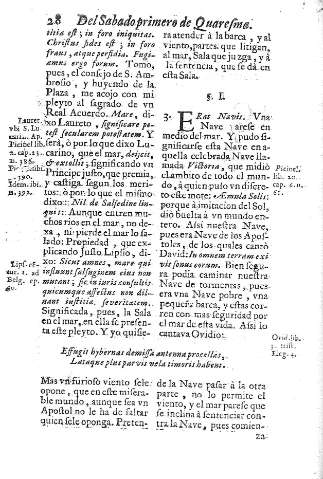 28 Del Sabado primero de Quaresma.
titia est; in foro iniquitas.
Christus fides est; in foro
fraus, atque perfidia. Fugi-
amus ergo forum. Tomo,
pues, el consejo de S. Am-
brosio, y huyendo de la
Plaza, me acojo con mi
pleyto al sagrado de vn
Real Acuerdo. Mare, di-
xo Laureto, significare po-
test secularem potestatem. Y
será, ò por lo que dixo Lu-
carino, que el mar, deijcit,
& extollit; significando vn
Principe justo, que premia,
y castiga segun los meri-
tos: ò por lo que el mismo
dixo: Nil de Salsedine lin-
quit: Aunque entren mu-
chos rios en el mar, no de-
xa, ni pierde el mar lo sa-
lado: Propiedad, que ex-
plicando Justo Lipsio, di-
xo: Sicut amnes, mare qui
influunt salsuginem eius non
mutant; sic in iuris consultis
quicumque affectus non dil-
uant iustitiæ severitatem.
Significada, pues, la Sala
en el mar, en ella se presen-
ta este pleyto. Y yo quisie-
Lauret.
vbi S. Lu-
Picinel lib.
2. cap. 23.
n. 386.
n. 390.
Idem. ibi.
n. 392.
ra atender à la barca, y al
viento, partes que litigan,
al mar, Sala que juzga, y à
la sentencia, que se dà en
esta Sala.
§. I.
3. Erat Navis. Vna
Nave parese en
medio del mar. Y pudo si-
gnificarse esta Nave en a-
quella celebrada Nave lla-
mada Victoria, que midiò
el ambito de todo el mun-
do, à quien puso vn difere-
to este mote: Æmula Solis:
porque à imitacion del Sol,
diò buelta à vn mundo en-
tero. Assi nuestra Nave,
pues era Nave de los Apos-
toles, de los quales cantò
David: In omnem terram exi
vit sonus eorum. Bien segu-
ra podia caminar nuestra
Nave de tormentas, pues
era vna Nave pobre, vna
pequeña barca, y estas cor-
ren con mas seguridad por
el mar de esta vida. Assi lo
cantava Ovidio:
lib. 20.
Ovid. lib.
3. trist.
Eleg. 4.
Effugit hybernas demissa antenna procellas,
Lataque plus parvis vela timoris habent.
Mas vn furioso viento sele
opone, que en este misera-
ble mundo, aunque sea vn
Apostol no le ha de faltar
quien sele oponga. Preten-
de la Nave pasar à la otra
parte, no lo permite el
viento, y el mar parese que
se inclina à sentenciar con-
tra la Nave, pues comien-
za